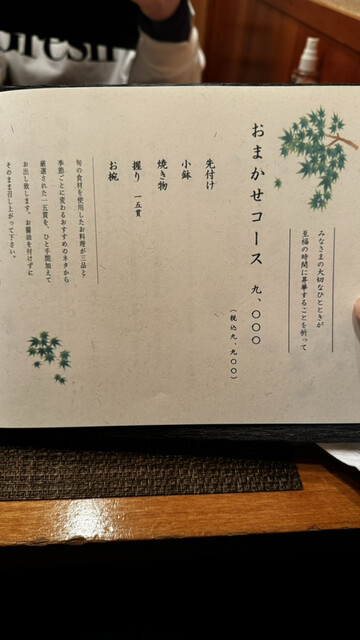 みなさまの大切なひとときが
至福の時間に昇華することを祈って
おまかせコース 九、〇〇〇
(税込九、九〇〇)
先付け
小鉢
焼き物
握り 一五貫
お椀
旬の食材を使用したお料理が三品と
季節ごとに変わるおすすめのネタから
厳選された一五貫を、ひと手間加えて
お出し致します。お醤油を付けずに
そのまま召し上がって下さい。